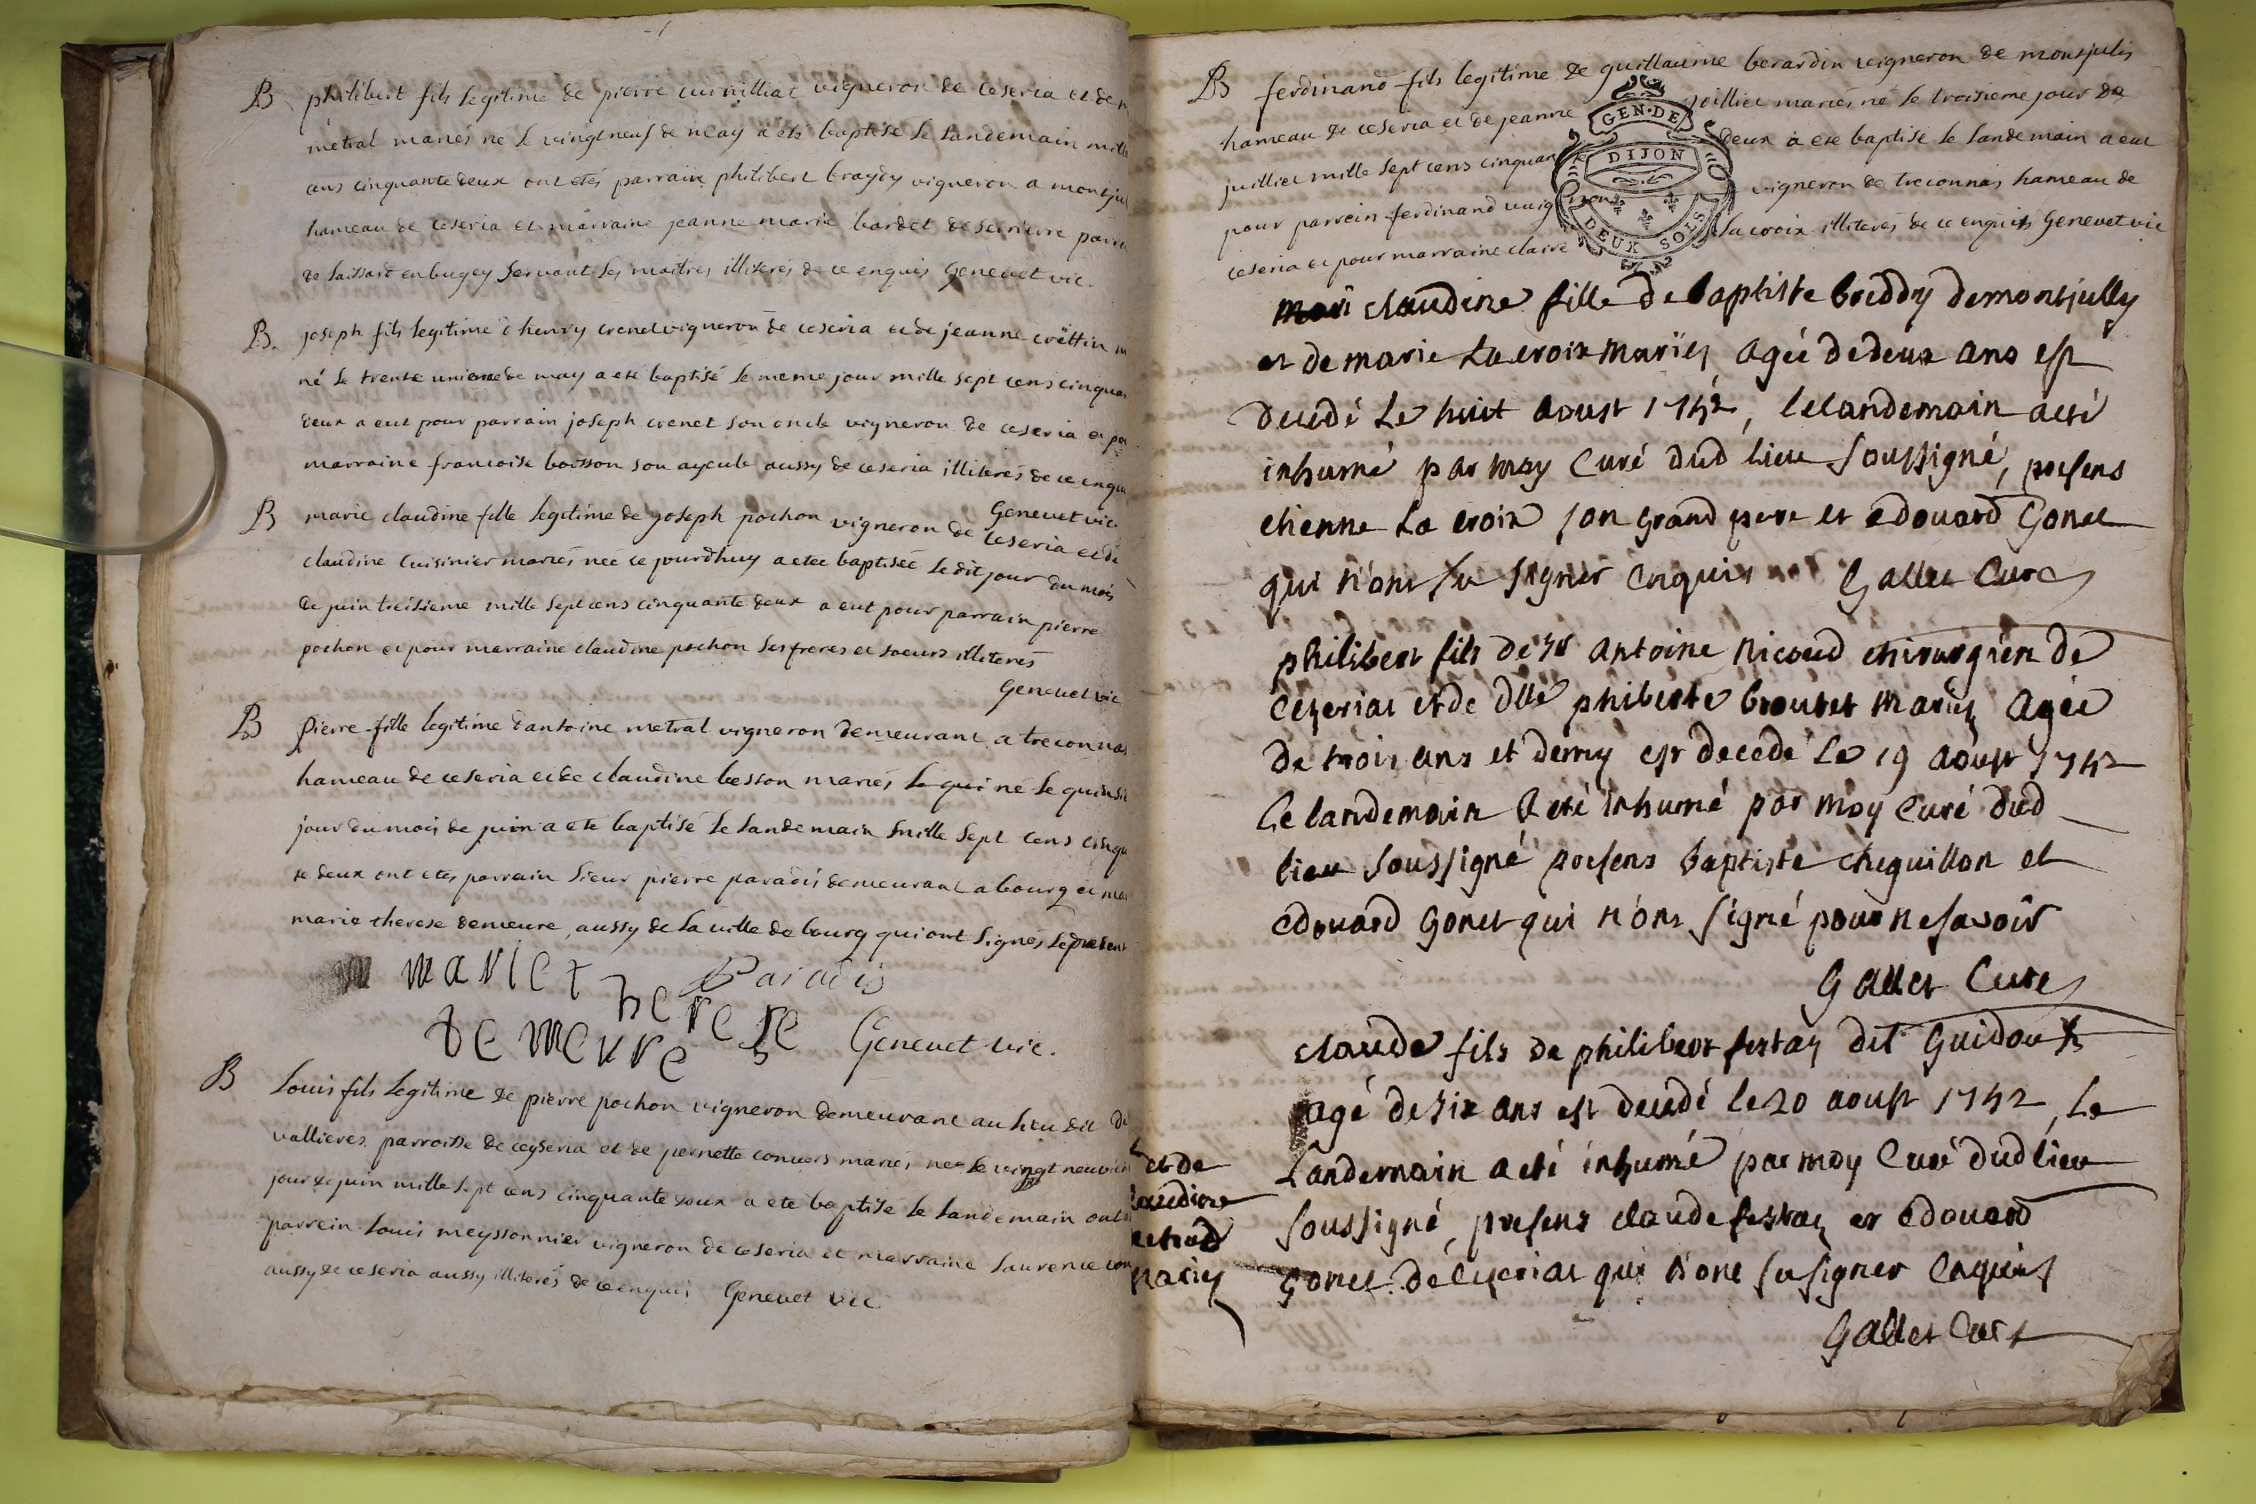 B philibert fils legitime de pierre curvilliat vigneron de ceseria et de
metral mariés né le vingt neuf de may a eté baptisé le landemain mille
ans cinquante deux ont étés parrain philibert braydy vigneron a montju
hameau de ceseria et marraine jeanne marie bardet de serriere parro
de saissard en bugey servant ses maitres illiterés de ce enquis Genevet vic.
B. joseph fils legitime d henry crenet vigneron de ceseria et de jeanne
né le trente unieme de may a eté baptisé le meme jour mille sept cens cinquan
deux a eut pour parrain joseph crenet son oncle vigneron de ceseria et po
marraine francoise boisson son ayeule aussy de ceseria illiterés de ce enqu
Genevet vic
B marie claudine fille legitime de joseph pochon vigneron de ceseria et de
claudine Cuisinier mariés neé ce jourdhuy a etee baptisée le dit jour du mois
de juin treisieme mille sept cens cinquante deux a eut pour parrain pierre
pochon et pour marraine claudine pochon ses freres et soeurs illiterés
Genevet vic
B Pierre fille legitime d antoine metral vigneron demeurant a treconnas
hameau de ceseria et de claudine besson mariés le qui né le quinsie
jour du mois de juin a eté baptisé le landemain mille sept cens cinqu
te deux ont etes parrain Sieur pierre paradis demeurant a bourg et ma
marie therese demeure aussy de la ville de bourg qui ont signés le present
marie t Paradis
herese
demeure Genevet vic.
B Louis fils legitime de pierre pochon vigneron demeurant au lieu dit de
vallieres parroisse de ceyseria et de pernette convers mariés né le vingt neuvie
jour de juin mille sept cens cinquante deux a ete baptisé le landemain ont
parrein Louis meyssonnier vigneron de ceseria et marraine Laurence con
aussy de ceseria aussy illiterés de ce enquis Genevet vic
B ferdinand fils legitime de guillaume berardin vigneron de monsjulis
hameau de ceseria et de jeanne joilliet mariés né le troisieme jour de
juilliet mille sept cens cinquan deux a ete baptisé le landemain a eut
pour parrein ferdinand vuignon vigneron de treconnas hameau de
ceseria et pour marraine claire la croix illiterés de ce enquis Genevet vic
GEN·DE
DIJON
DEUX SOLS
claudine fille de baptiste breddy de montjully
et de marie La croix mariés agée de deux ans est
decédé Le huit aoust 1752, le landemain a eté
inhumé par moy Curé dud lieu soussigné, presens
etienne La croix son grand pere et edouard Gonet
qui n'ont su signer enquis Gallet Curé
philibert fils de Sr antoine Nicoud chirurgien de
Ceyseriat et de dlle philiberte broutet mariés agée
de trois ans et demy est decede Le 19 aoust 1752
Le landemain a eté inhumé par moy Curé dud
lieu soussigné presens baptiste cheguillon et
edouard Gonet qui n'ont signé pour ne savoir
Gallet Curé
claude fils de philibert festaz dit Guidoux
agé de six ans est decedé le 20 aoust 1752, Le
Landemain a eté inhumé par moy Curé dud lieu
soussigné, presens claude festaz et edouard
Gonet de Ceyseriat qui n'ont su signer enquis
Gallet Curé
et de
claudine
mariés